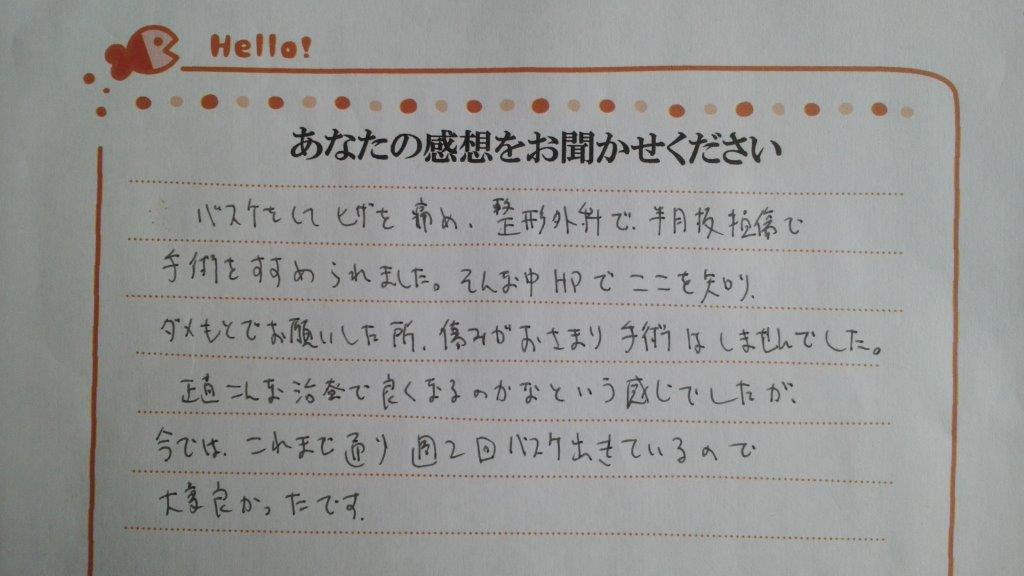 Hello!
あなたの感想をお聞かせください
バスケをしてヒザを痛め、整形外科で、半月板損傷で
手術をすすめられました。そんな中HPでここを知り、
ダメもとでお願いした所、傷みがおさまり手術はしませんでした。
正直こんな治療で良くなるのかなという感じでしたが、
今では、これまで通り週2回バスケ出きているので
大変良かったです。